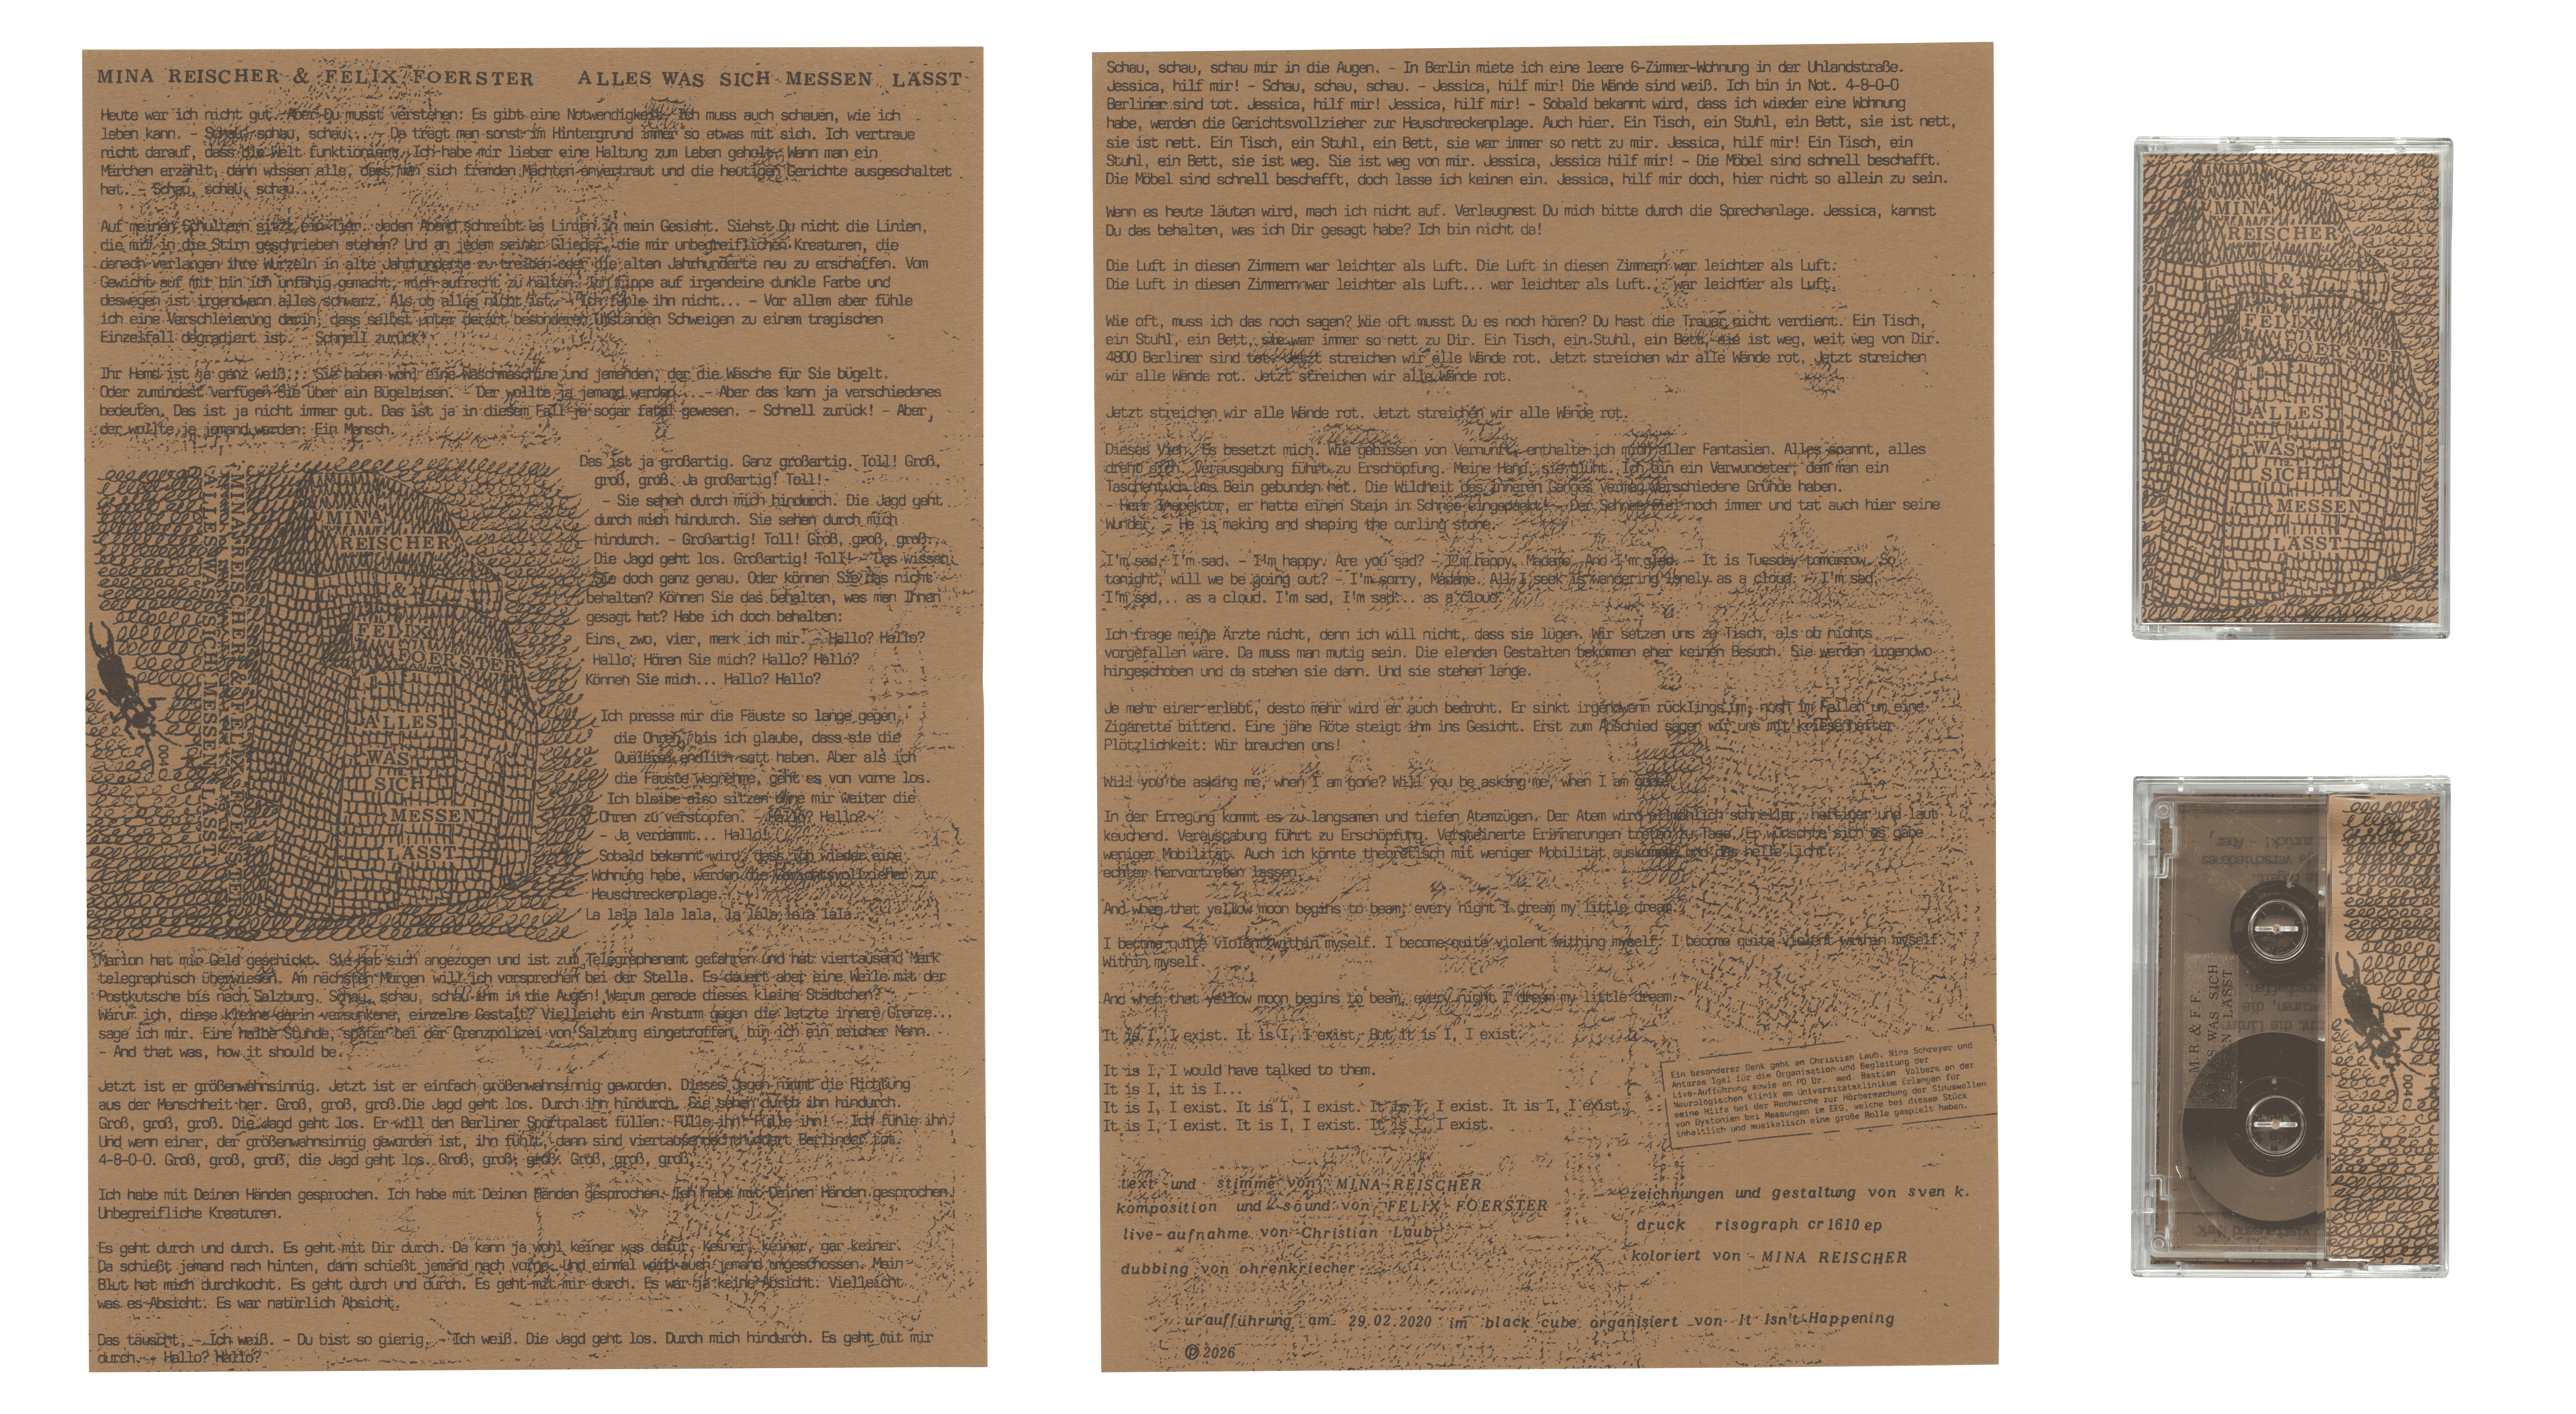 MINA REISCHER & FELIX FOERSTER ALLES WAS SICH MESSEN LÄSST
Heute war ich nicht gut. Aber Du musst verstehen: Es gibt eine Notwendigkeit. Ich muss auch schauen, wie ich
leben kann. - Schau, schau, schau... - Da trägt man sonst im Hintergrund immer so etwas mit sich. Ich vertraue
nicht darauf, dass die Welt funktioniert. Ich habe mir lieber eine Haltung zum Leben geholt. Wenn man ein
Märchen erzählt, dann wissen alle, dass man sich fremden Mächten anvertraut und die heutigen Gerichte ausgeschaltet
hat. - Schau, schau, schau...
Auf meinen Schultern sitzt ein Tier. Jeden Abend schreibt es Linien in mein Gesicht. Siehst Du nicht die Linien,
die mir in die Stirn geschrieben stehen? Und an jedem seiner Glieder, die mir unbegreiflichen Kreaturen, die
danach verlangen ihre Wurzeln in alte Jahrhunderte zu treiben oder die alten Jahrhunderte neu zu erschaffen. Vom
Gewicht auf mir bin ich unfähig gemacht, mich aufrecht zu halten. Ich tippe auf irgendeine dunkle Farbe und
deswegen ist irgendwann alles schwarz. Als ob alles nicht ist. - Ich fühle ihn nicht... - Vor allem aber fühle
ich eine Verschleierung darin, dass selbst unter derart besonderen Umständen Schweigen zu einem tragischen
Einzelfall degradiert ist. - Schnell zurück!
Ihr Hemd ist ja ganz weiß... Sie haben wohl eine Waschmaschine und jemanden, der die Wäsche für Sie bügelt.
Oder zumindest verfügen Sie über ein Bügeleisen. - Der wollte ja jemand werden... - Aber das kann ja verschiedenes
bedeuten. Das ist ja nicht immer gut. Das ist ja in diesem Fall ja sogar fatal gewesen. - Schnell zurück! - Aber,
der wollte ja jemand werden: Ein Mensch.
Das ist ja großartig. Ganz großartig. Toll! Groß,
groß, groß. Ja großartig! Toll!
- Sie sehen durch mich hindurch. Die Jagd geht
durch mich hindurch. Sie sehen durch mich
hindurch. - Großartig! Toll! Groß, groß, groß.
Die Jagd geht los. Großartig! Toll! - Das wissen
Sie doch ganz genau. Oder können Sie das nicht
behalten? Können Sie das behalten, was man Ihnen
gesagt hat? Habe ich doch behalten:
Eins, zwo, vier, merk ich mir. - Hallo? Hallo?
Hallo, Hören Sie mich? Hallo? Hallo?
Können Sie mich... Hallo? Hallo?
Ich presse mir die Fäuste so lange gegen
die Ohren, bis ich glaube, dass sie die
Quälerei endlich satt haben. Aber als ich
die Fäuste wegnehme, geht es von vorne los.
Ich bleibe also sitzen ohne mir weiter die
Ohren zu verstopfen. - Hallo? Hallo?
- Ja verdammt... Hallo!
Sobald bekannt wird, dass ich wieder eine
Wohnung habe, werden die Gerichtsvollzieher zur
Heuschreckenplage.
La lala lala lala, la lala lala lala
MINA REISCHER & FELIX FOERSTER
ALLES WAS SICH MESSEN LÄSST
004CJ
MINA
REISCHER
&
FELIX
FOERSTER
ALLES
WAS
SICH
MESSEN
LÄSST
Marion hat mir Geld geschickt. Sie hat sich angezogen und ist zum Telegraphenamt gefahren und hat viertausend Mark
telegraphisch überwiesen. Am nächsten Morgen will ich vorsprechen bei der Stelle. Es dauert aber eine Weile mit der
Postkutsche bis nach Salzburg. Schau, schau, schau ihm in die Augen! Warum gerade dieses kleine Städtchen?
Warum ich, diese kleine darin versunkene, einzelne Gestalt? Vielleicht ein Ansturm gegen die letzte innere Grenze...
sage ich mir. Eine halbe Stunde, später bei der Grenzpolizei von Salzburg eingetroffen, bin ich ein reicher Mann.
- And that was, how it should be.
Jetzt ist er größenwahnsinnig. Jetzt ist er einfach größenwahnsinnig geworden. Dieses Jagen nimmt die Richtung
aus der Menschheit her. Groß, groß, groß.Die Jagd geht los. Durch ihn hindurch. Sie sehen durch ihn hindurch.
Groß, groß, groß. Die Jagd geht los. Er will den Berliner Sportpalast füllen: Fülle ihn! Fülle ihn! - Ich fühle ihn.
Und wenn einer, der größenwahnsinnig geworden ist, ihn fühlt, dann sind viertausendachthundert Berlinder tot.
4-8-0-0. Groß, groß, groß, die Jagd geht los. Groß, groß, groß. Groß, groß, groß.
Ich habe mit Deinen Händen gesprochen. Ich habe mit Deinen Händen gesprochen. Ich habe mit Deinen Händen gesprochen.
Unbegreifliche Kreaturen.
Es geht durch und durch. Es geht mit Dir durch. Da kann ja wohl keiner was dafür. Keiner, keiner, gar keiner.
Da schießt jemand nach hinten, dann schießt jemand nach vorne. Und einmal wird auch jemand umgeschossen. Mein
Blut hat mich durchkocht. Es geht durch und durch. Es geht mit mir durch. Es war ja keine Absicht. Vielleicht
was es Absicht. Es war natürlich Absicht.
Das täuscht. - Ich weiß. - Du bist so gierig. - Ich weiß. Die Jagd geht los. Durch mich hindurch. Es geht mit mir
durch. - Hallo? Hallo?
Schau, schau, schau mir in die Augen. - In Berlin miete ich eine leere 6-Zimmer-Wohnung in der Uhlandstraße.
Jessica, hilf mir! - Schau, schau, schau. - Jessica, hilf mir! Die Wände sind weiß. Ich bin in Not. 4-8-0-0
Berliner sind tot. Jessica, hilf mir! Jessica, hilf mir! - Sobald bekannt wird, dass ich wieder eine Wohnung
habe, werden die Gerichtsvollzieher zur Heuschreckenplage. Auch hier. Ein Tisch, ein Stuhl, ein Bett, sie ist nett,
sie ist nett. Ein Tisch, ein Stuhl, ein Bett, sie war immer so nett zu mir. Jessica, hilf mir! Ein Tisch, ein
Stuhl, ein Bett, sie ist weg. Sie ist weg von mir. Jessica, Jessica hilf mir! - Die Möbel sind schnell beschafft.
Die Möbel sind schnell beschafft, doch lasse ich keinen ein. Jessica, hilf mir doch, hier nicht so allein zu sein.
Wenn es heute läuten wird, mach ich nicht auf. Verleugnest Du mich bitte durch die Sprechanlage. Jessica, kannst
Du das behalten, was ich Dir gesagt habe? Ich bin nicht da!
Die Luft in diesen Zimmern war leichter als Luft. Die Luft in diesen Zimmern war leichter als Luft.
Die Luft in diesen Zimmern war leichter als Luft... war leichter als Luft... war leichter als Luft.
Wie oft, muss ich das noch sagen? Wie oft musst Du es noch hören? Du hast die Trauer nicht verdient. Ein Tisch,
ein Stuhl, ein Bett, sie war immer so nett zu Dir. Ein Tisch, ein Stuhl, ein Bett, sie ist weg, weit weg von Dir.
4800 Berliner sind tot. Jetzt streichen wir alle Wände rot. Jetzt streichen wir alle Wände rot. Jetzt streichen
wir alle Wände rot. Jetzt streichen wir alle Wände rot.
Jetzt streichen wir alle Wände rot. Jetzt streichen wir alle Wände rot.
Dieses Vieh. Es besetzt mich. Wie gebissen von Vernunft, enthalte ich mich aller Fantasien. Alles spannt, alles
dreht sich. Verausgabung führt zu Erschöpfung. Meine Hand, sie glüht. Ich bin ein Verwundeter, dem man ein
Taschentuch ums Bein gebunden hat. Die Wildheit des inneren Ganges vermag verschiedene Gründe haben.
- Herr Inspektor, er hatte einen Stein in Schnee eingepackt! - Der Schnee fiel noch immer und tat auch hier seine
Wunder. - He is making and shaping the curling stone.
I'm sad. I'm sad. - I'm happy. Are you sad? - I'm happy, Madame. And I'm glad. - It is Tuesday tomorrow. So
tonight, will we be going out? - I'm sorry, Madame. All I seek is wandering lonely as a cloud. - I'm sad,
I'm sad... as a cloud. I'm sad, I'm sad... as a cloud.
Ich frage meine Ärzte nicht, denn ich will nicht, dass sie lügen. Wir setzen uns zu Tisch, als ob nichts
vorgefallen wäre. Da muss man mutig sein. Die elenden Gestalten bekommen eher keinen Besuch. Sie werden irgendwo
hingeschoben und da stehen sie dann. Und sie stehen lange.
Je mehr einer erlebt, desto mehr wird er auch bedroht. Er sinkt irgendwann rücklings um, noch im Fallen um eine
Zigarette bittend. Eine jähe Röte steigt ihm ins Gesicht. Erst zum Abschied sagen wir uns mit krisenhafter
Plötzlichkeit: Wir brauchen uns!
Will you be asking me, when I am gone? Will you be asking me, when I am gone?
In der Erregung kommt es zu langsamen und tiefen Atemzügen. Der Atem wird allmählich schneller, heftiger und laut
keuchend. Verausgabung führt zu Erschöpfung. Versteinerte Erinnerungen treten zu Tage. Er wünschte sich es gäbe
weniger Mobilität. Auch ich könnte theoretisch mit weniger Mobilität auskommen und das helle Licht
echter hervortreten lassen.
And when that yellow moon begins to beam, every night I dream my little dream.
I become quite violent within myself. I become quite violent withing myself. I become quite violent within myself.
Within myself.
And when that yellow moon begins to beam, every night I dream my little dream.
It is I, I exist. It is I, I exist. But it is I, I exist.
It is I, I would have talked to them.
It is I, it is I...
It is I, I exist. It is I, I exist. It is I, I exist. It is I, I exist.
It is I, I exist. It is I, I exist. It is I, I exist.
Ein besonderer Dank geht an Christian Laub, Nina Schreyer und
Antares Igel für die Organisation und Begleitung der
Live-Aufführung sowie an PD Dr. med. Bastian Volbers an der
Neurologischen Klinik am Universitätsklinikum Erlangen für
seine Hilfe bei der Recherche zur Hörbarmachung der Sinuswellen
von Dystonien bei Messungen im EEG, welche bei diesem Stück
inhaltlich und musikalisch eine große Rolle gespielt haben.
text und stimme von MINA REISCHER
komposition und sound von FELIX FOERSTER
live-aufnahme von Christian Laub
dubbing von ohrenkriecher
zeichnungen und gestaltung von sven k.
druck risograph cr1610ep
koloriert von MINA REISCHER
uraufführung am 29.02.2020 im black cube organisiert von It Isn't Happening
℗ 2026
MINA
REISCHER
&
FELIX
FOERSTER
ALLES
WAS
SICH
MESSEN
LÄSST
M.R & F.F.
WAS SICH
LÄSST
004CJ